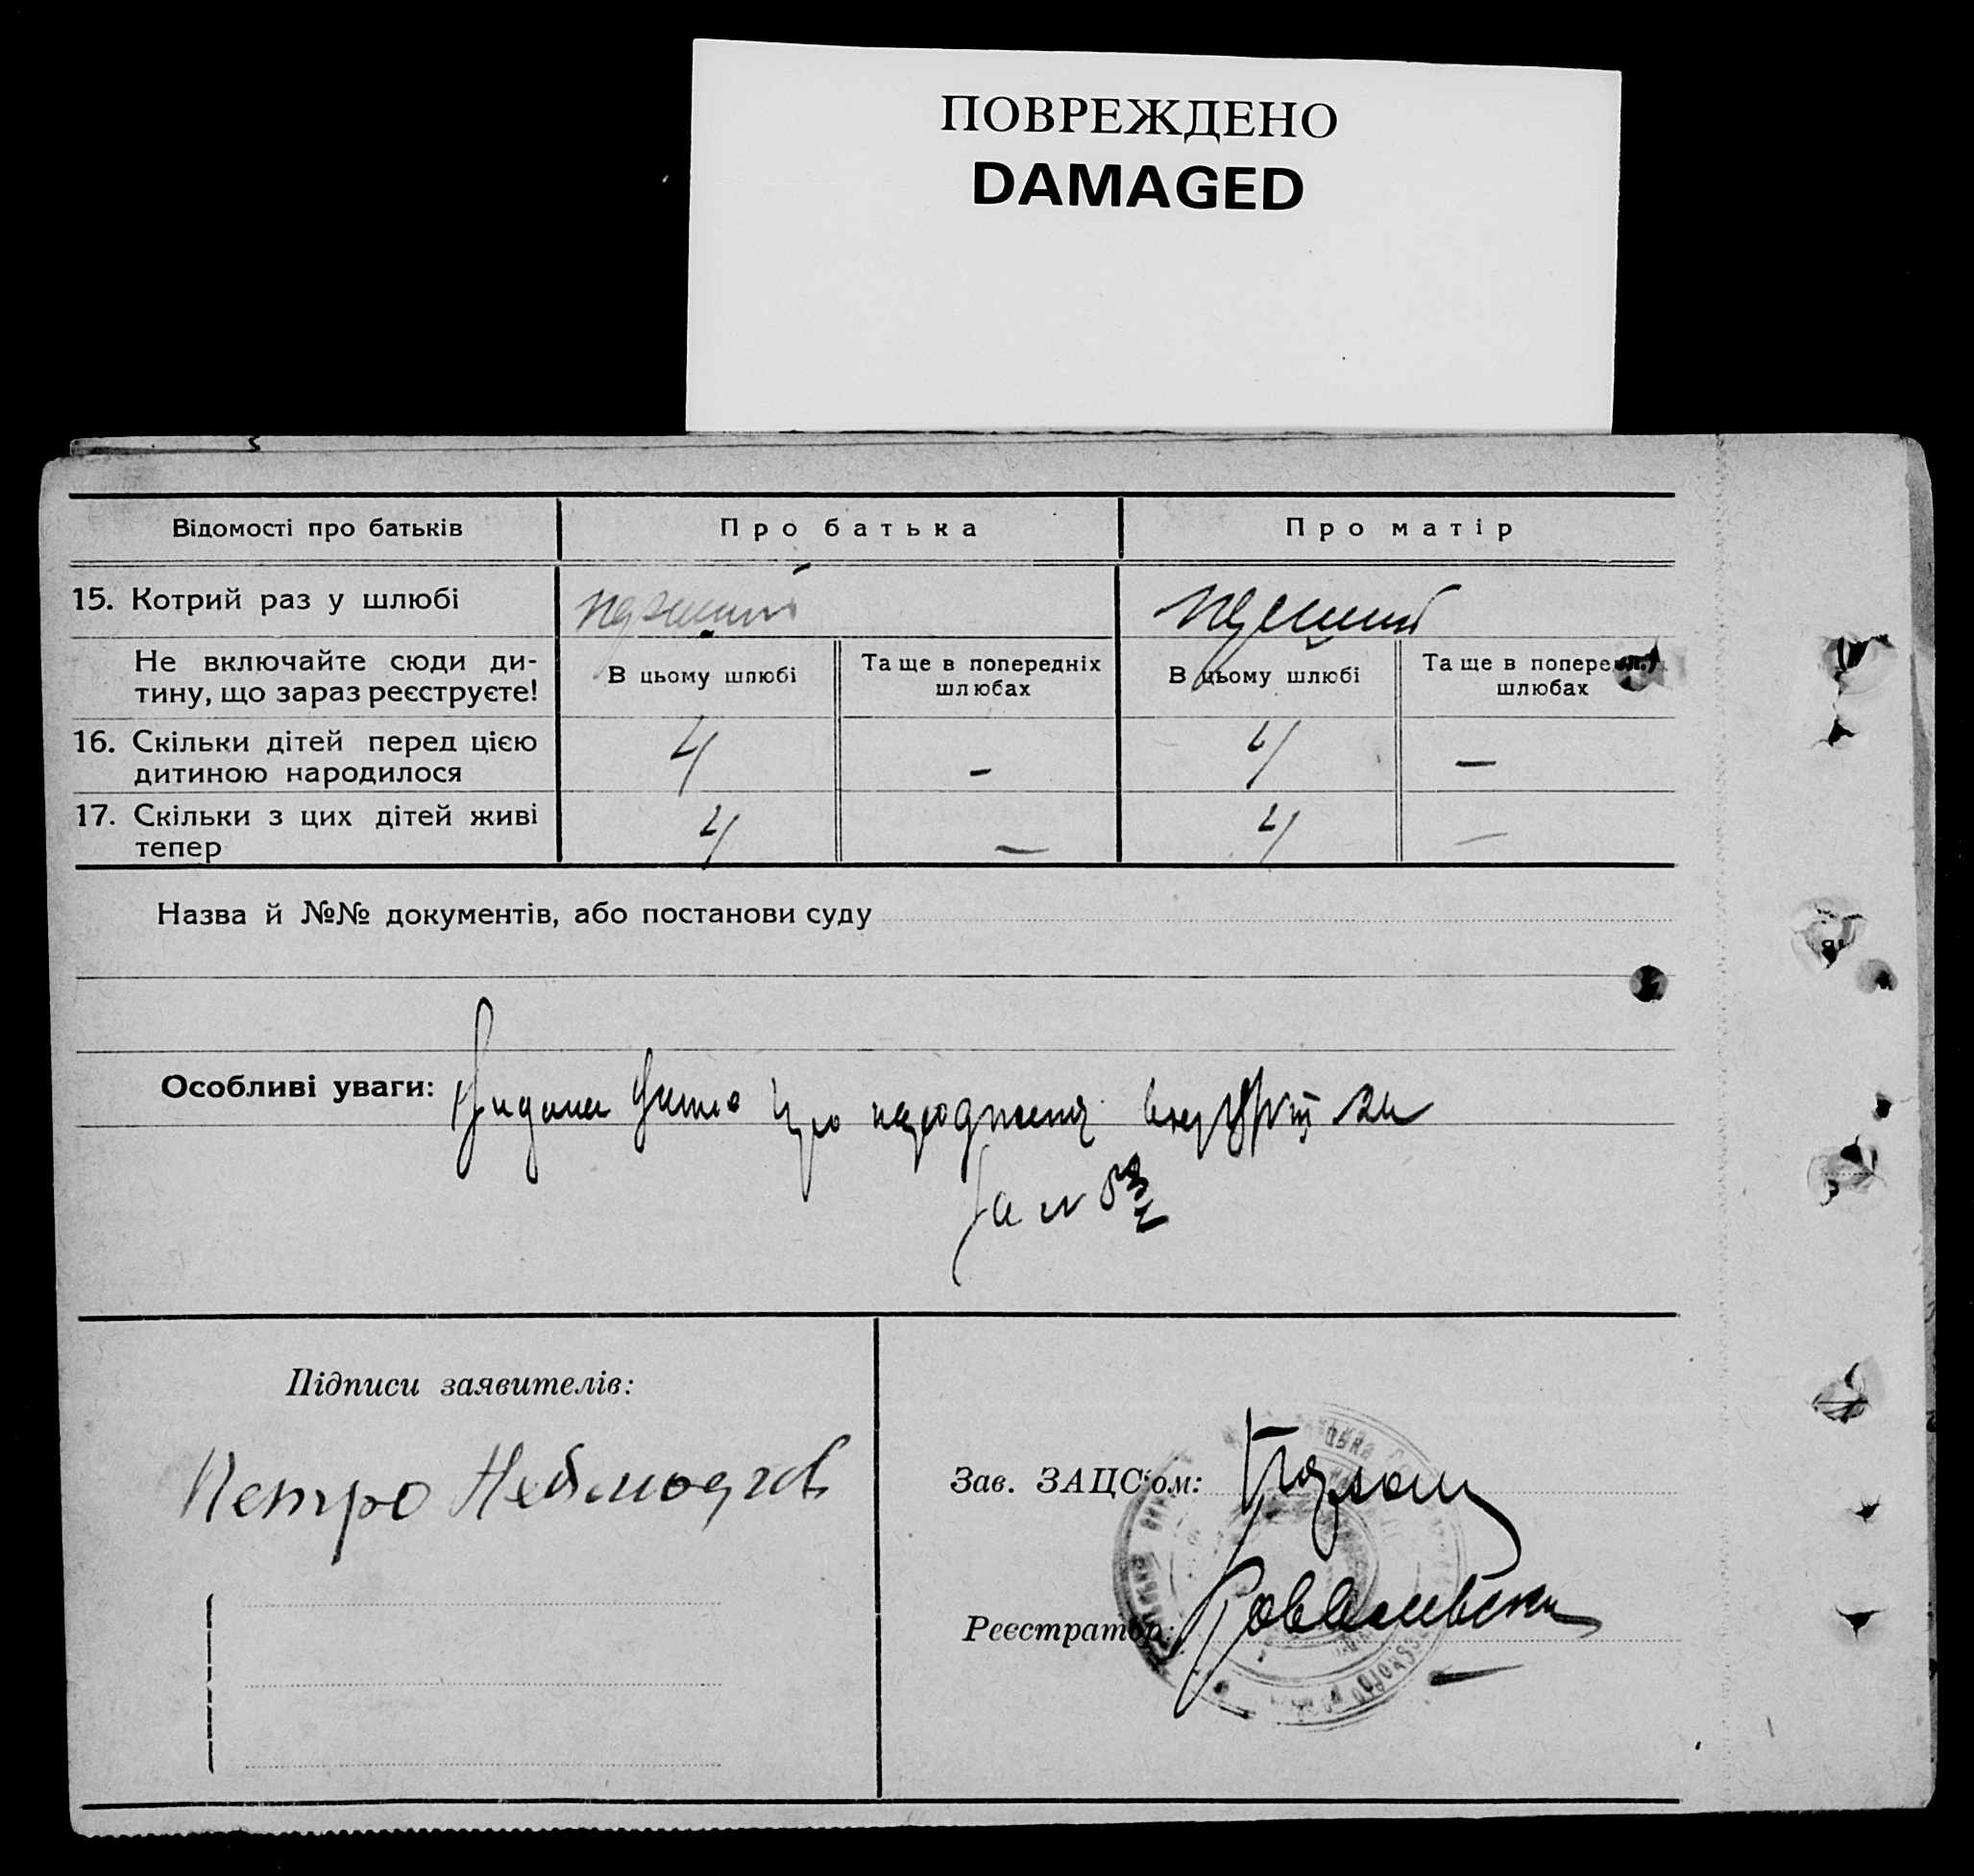 ПОВРЕЖДЕНО
DAMAGED
Відомості про батьків
Про батька
Про матір
15. Котрий раз у шлюбі
перший
перший
Не включайте сюди ди-
тину, що зараз реєструєте!
В цьому шлюбі
Та ще в попередніх
шлюбах
В цьому шлюбі
Та ще в попере
шлюбах
16. Скільки дітей перед цією
дитиною народилося
4
-
4
—
17. Скільки з цих дітей живі
тепер
4
—
4
—
Назва й №№ документів, або постанови суду
Особливі уваги:
про народження
за №
Підписи заявителів:
Петро
Зав. ЗАЦС'ом:
Реєстратор: